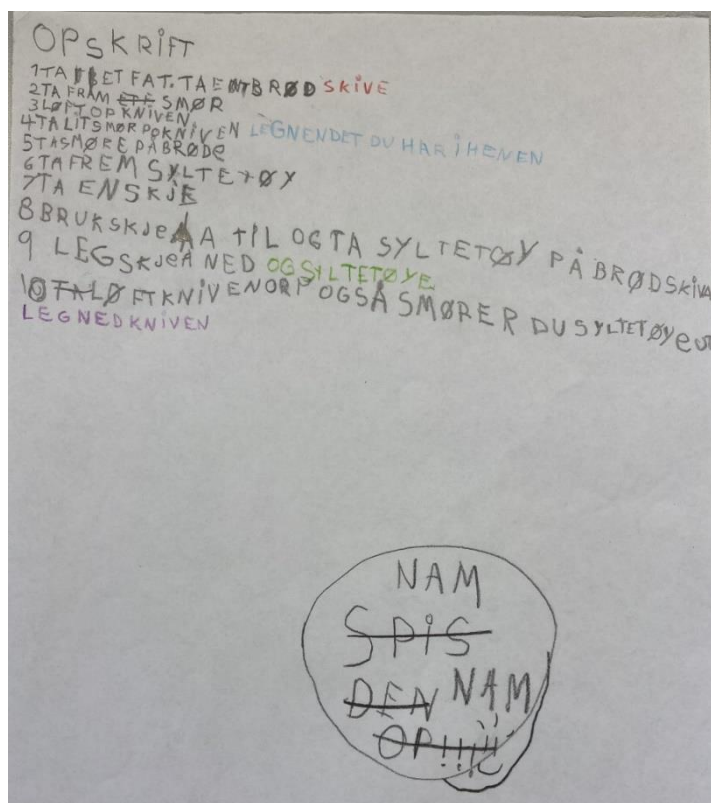 OPSKRIFT
1 TA ET FAT. TA EN BRØD SKIVE
2 TA FRAM SMØR
3 LØFT OP KNIVEN
4 TA LIT SMØR PÅ KNIVEN LEGNENDET DU HAR I HENEN
5 TA SMØRE PÅ BRØDE
6 TA FREM SYLTETØY
7 TA EN SKJE
8 BRUK SKJEA TIL OG TA SYLTETØY PÅ BRØDSKIVA
9 LEG SKJEA NED OG SYLTETØYE
10 LØFT KNIVEN OPP OGSÅ SMØRER DU SYLTETØYE UT
LEG NED KNIVEN
NAM
SPIS
DEN NAM
OP!!!!